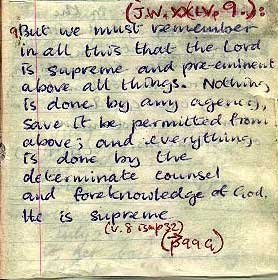 (J.W. xxiv. 9.):
9 But we must remember
in all this that the Lord
is supreme and pre-eminent
above all things. Nothing
is done by any agency,
save it be permitted from
above; and everything
is done by the
determinate counsel
and foreknowledge of God.
He is supreme
(v. 8 is ap32)